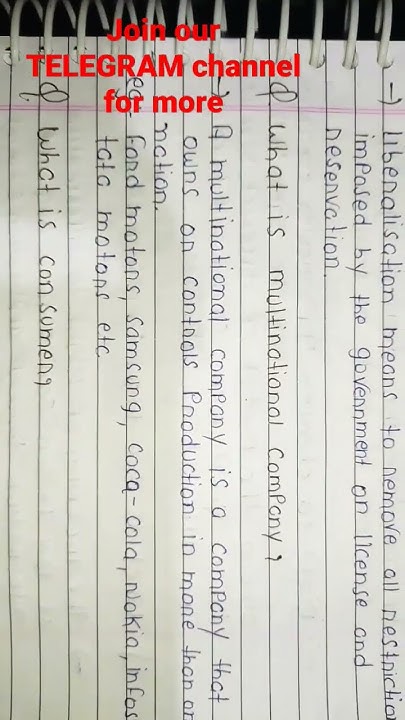 Join our
TELEGRAM channel
for more
→ liberalisation means to remove all restriction
imposed by the government on license and
reservation.
Q What is multinational company?
A multinational company is a company that
owns or controls Production in more than on
nation.
eg- ford motors, Samsung, coca-cola, Nokia, infos
tata motors etc
Q What is consumer,